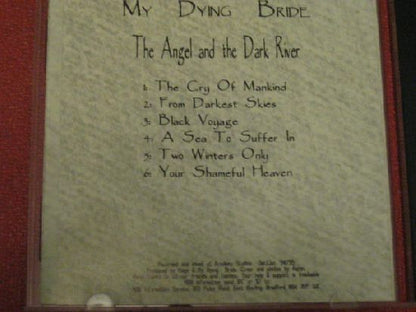 My Dying Bride
The Angel and the Dark River
1: The Cry Of Mankind
2: From Darkest Skies
3: Black Voyage
4: A Sea To Suffer In
5: Two Winters Only
6: Your Shameful Heaven
Recorded and mixed at Academy Studios
Produced by